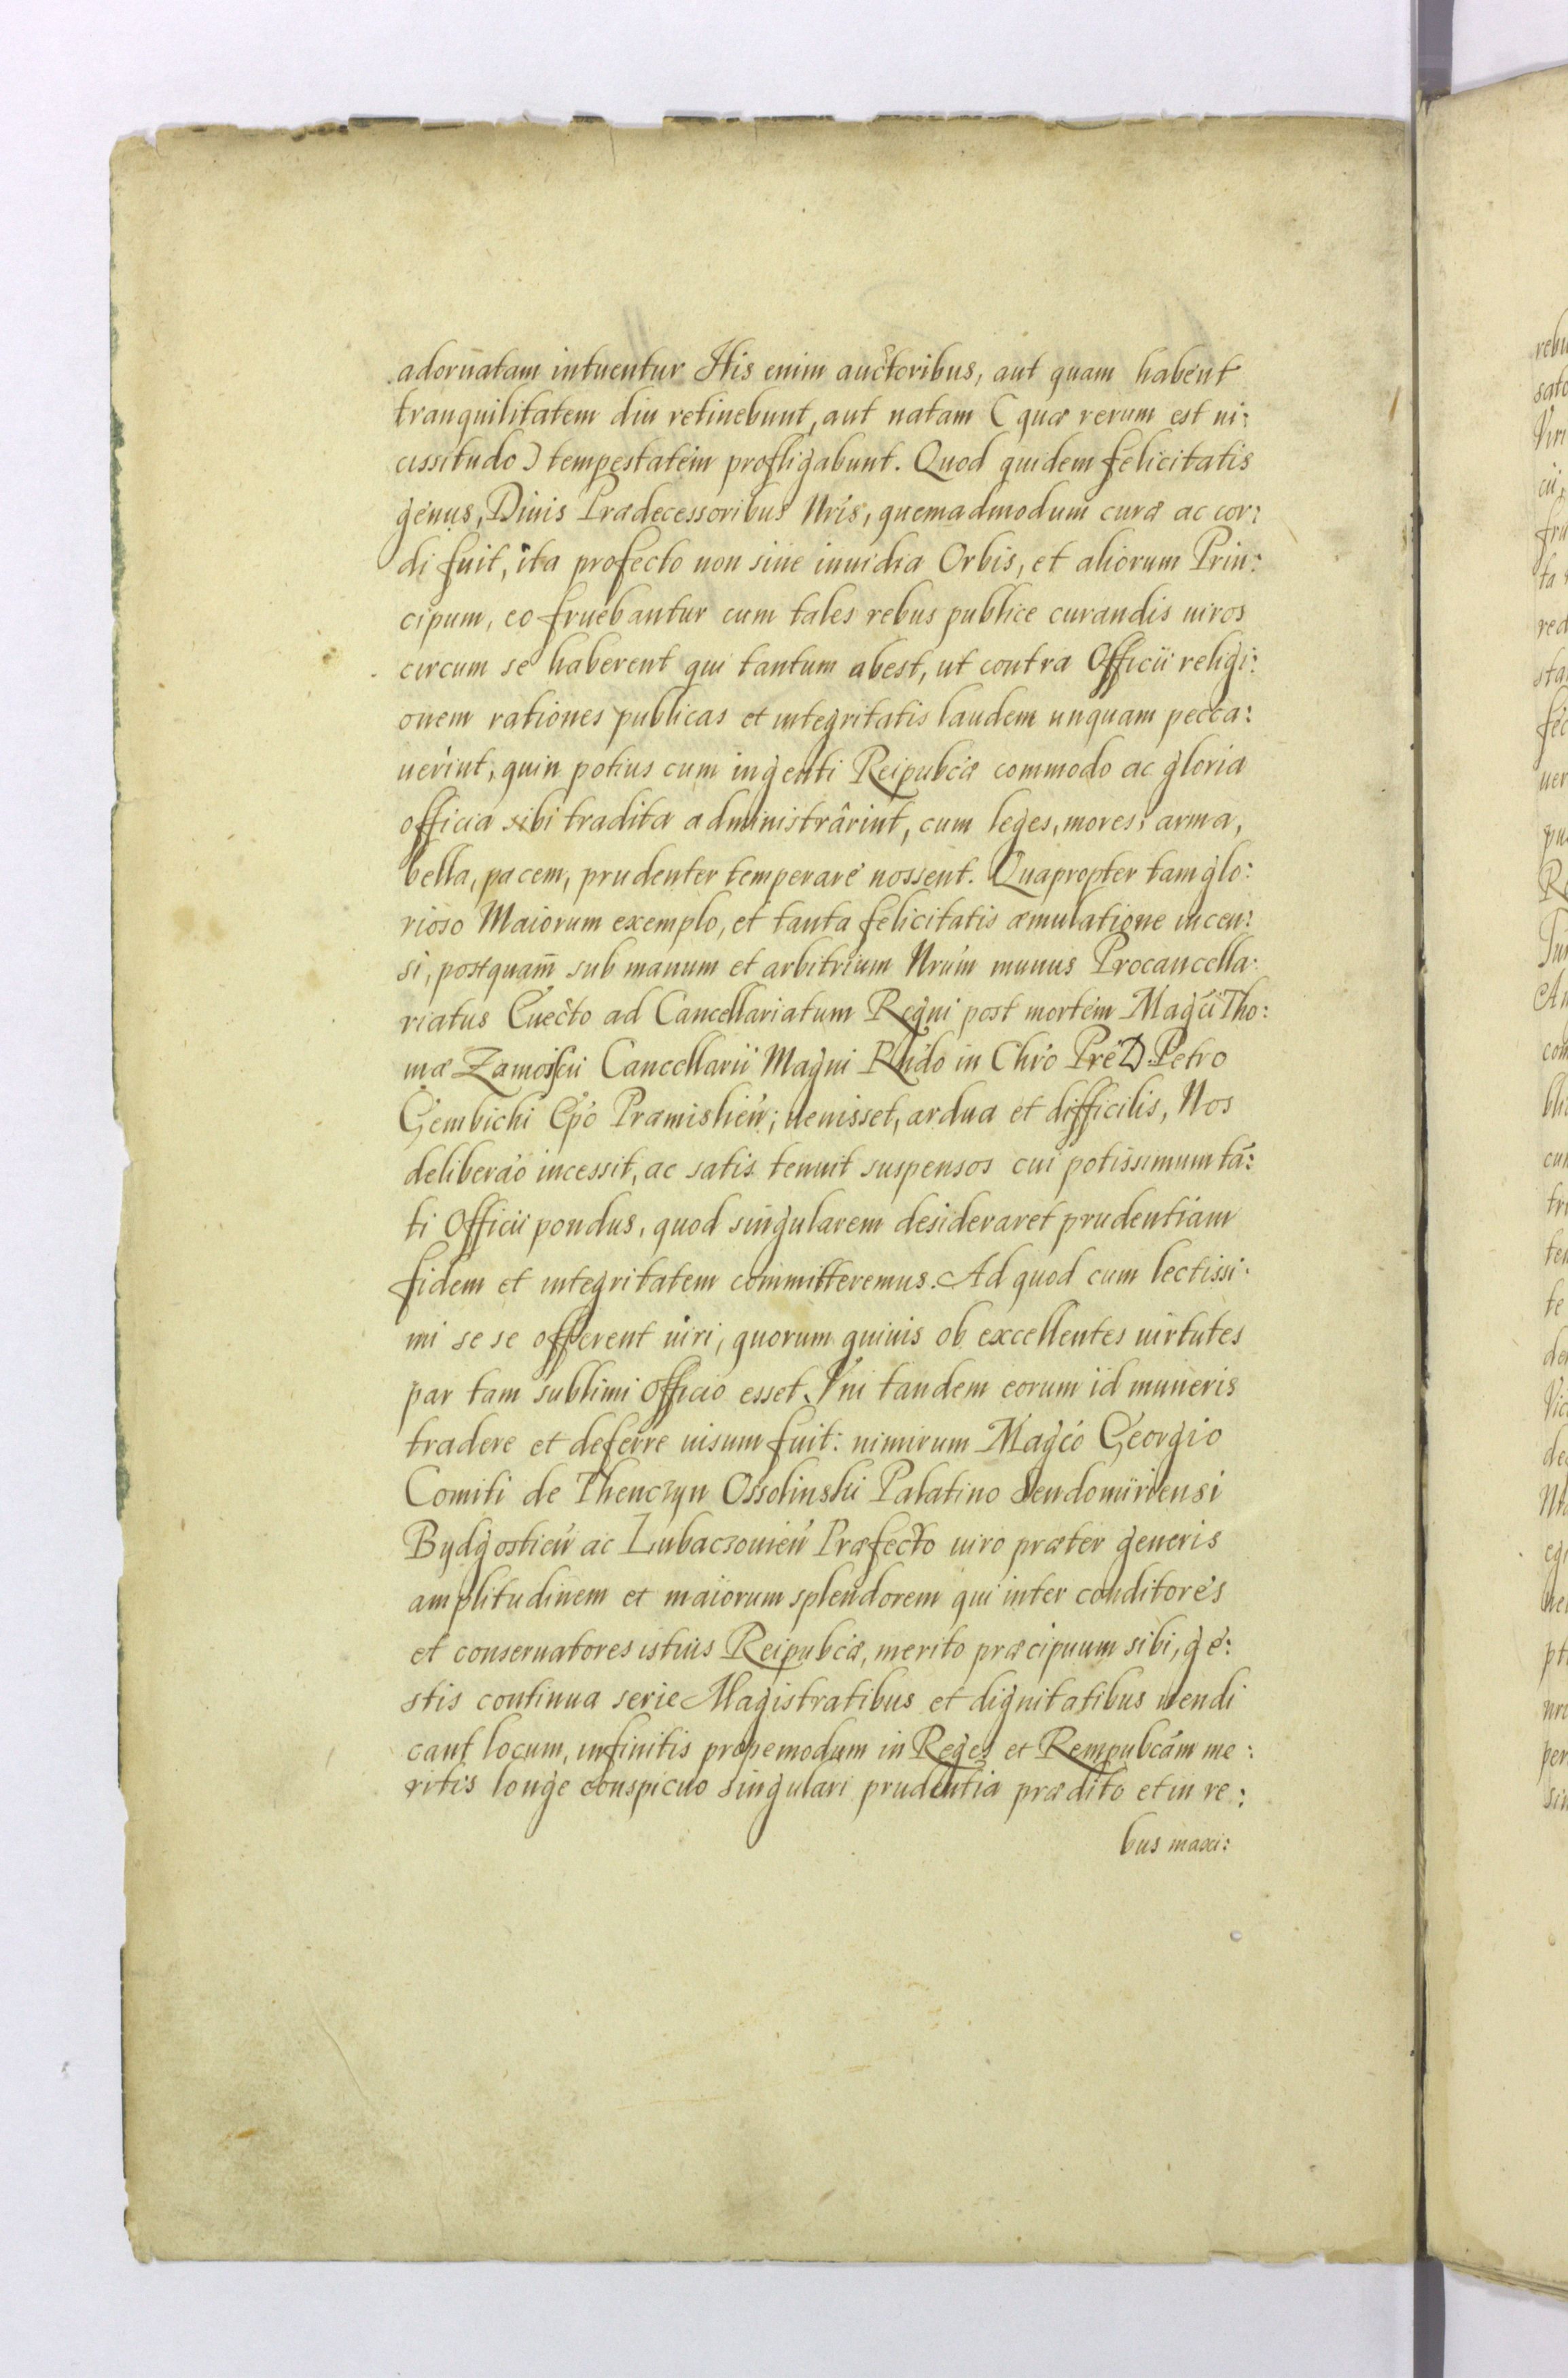 adornatam intuentur His enim auctoribus, aut quam habent
tranquilitatem diu retinebunt, aut natam ( quæ rerum est ui:
cissitudo ) tempestatem profligabunt. Quod quidem felicitatis
genus, Diuis Prædecessoribus Nris, quemadmodum curæ ac cor:
di fuit, ita profecto non sine inuidia Orbis, et aliorum Prin:
cipum, eo fruebantur cum tales rebus publice curandis uiros
circum se haberent qui tantum abest, ut contra Officii religi:
onem rationes publicas et integritatis laudem unquam pecca:
uerint, quin potius cum ingenti Reipubcæ commodo ac gloria
officia sibi tradita administrârint, cum leges, mores, arma,
bella, pacem, prudenter temperare nossent. Quapropter tam glo:
rioso Maiorum exemplo, et tanta felicitatis æmulatione incen:
si, postquam sub manum et arbitrium Nrum munus Procancella:
riatus Euecto ad Cancellariatum Regni post mortem Magci Tho:
mæ Zamoiscii Cancellarii Magni Rndo in Chro Pre D. Petro
Gembichi Epo Præmislien; uenisset, ardua et difficilis, Nos
deliberao incessit, ac satis tenuit suspensos cui potissimum tā:
ti Officii pondus, quod singularem desideraret prudentiam
fidem et integritatem committeremus. Ad quod cum lectissi:
mi se se offerent uiri, quorum quiuis ob excellentes uirtutes
par tam sublimi Officio esset, Vni tandem eorum id muneris
tradere et deferre uisum fuit: nimirum Magco Georgio
Comiti de Thenczyn Ossolinskii Palatino Sendomiriensi
Bydgostien ac Lubaczouien Præfecto uiro præter generis
amplitudinem et maiorum splendorem qui inter conditores
et conseruatores istius Reipubcæ, merito præcipuum sibi, ge:
stis continua serie Magistratibus et dignitatibus uendi
cant locum, infinitis propemodum in Reges et Rempubcam me:
ritis longe conspicuo singulari prudentia prædito et in re:
bus maxi: